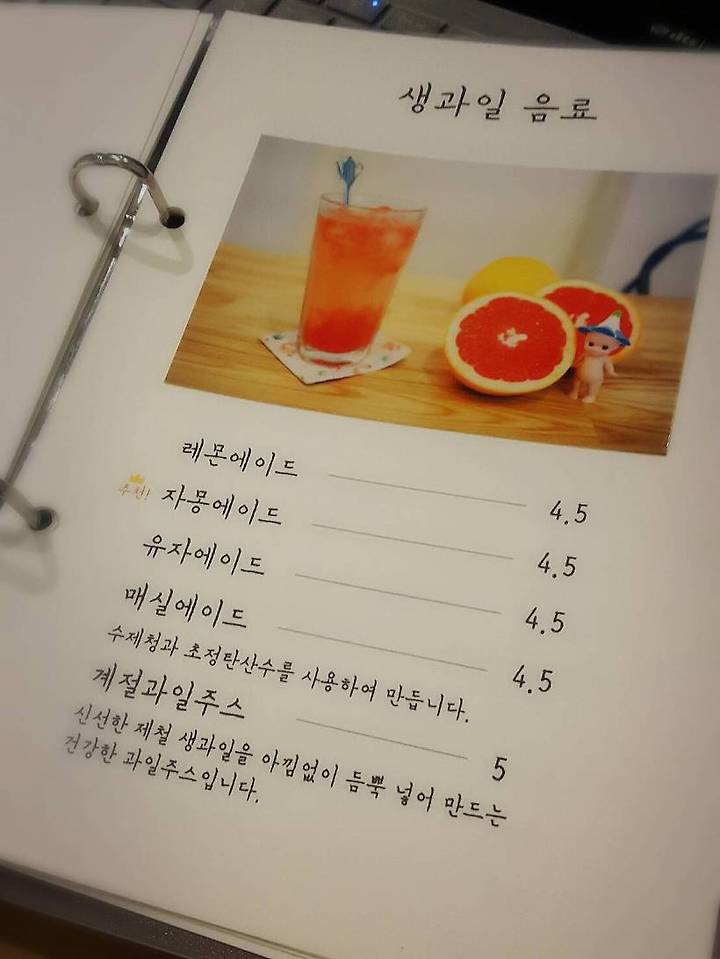 생과일 음료
레몬에이드 4.5
추천! 자몽에이드 4.5
유자에이드 4.5
매실에이드 4.5
수제청과 초정탄산수를 사용하여 만듭니다.
계절과일주스 5
신선한 제철 생과일을 아낌없이 듬뿍 넣어 만드는
건강한 과일주스입니다.